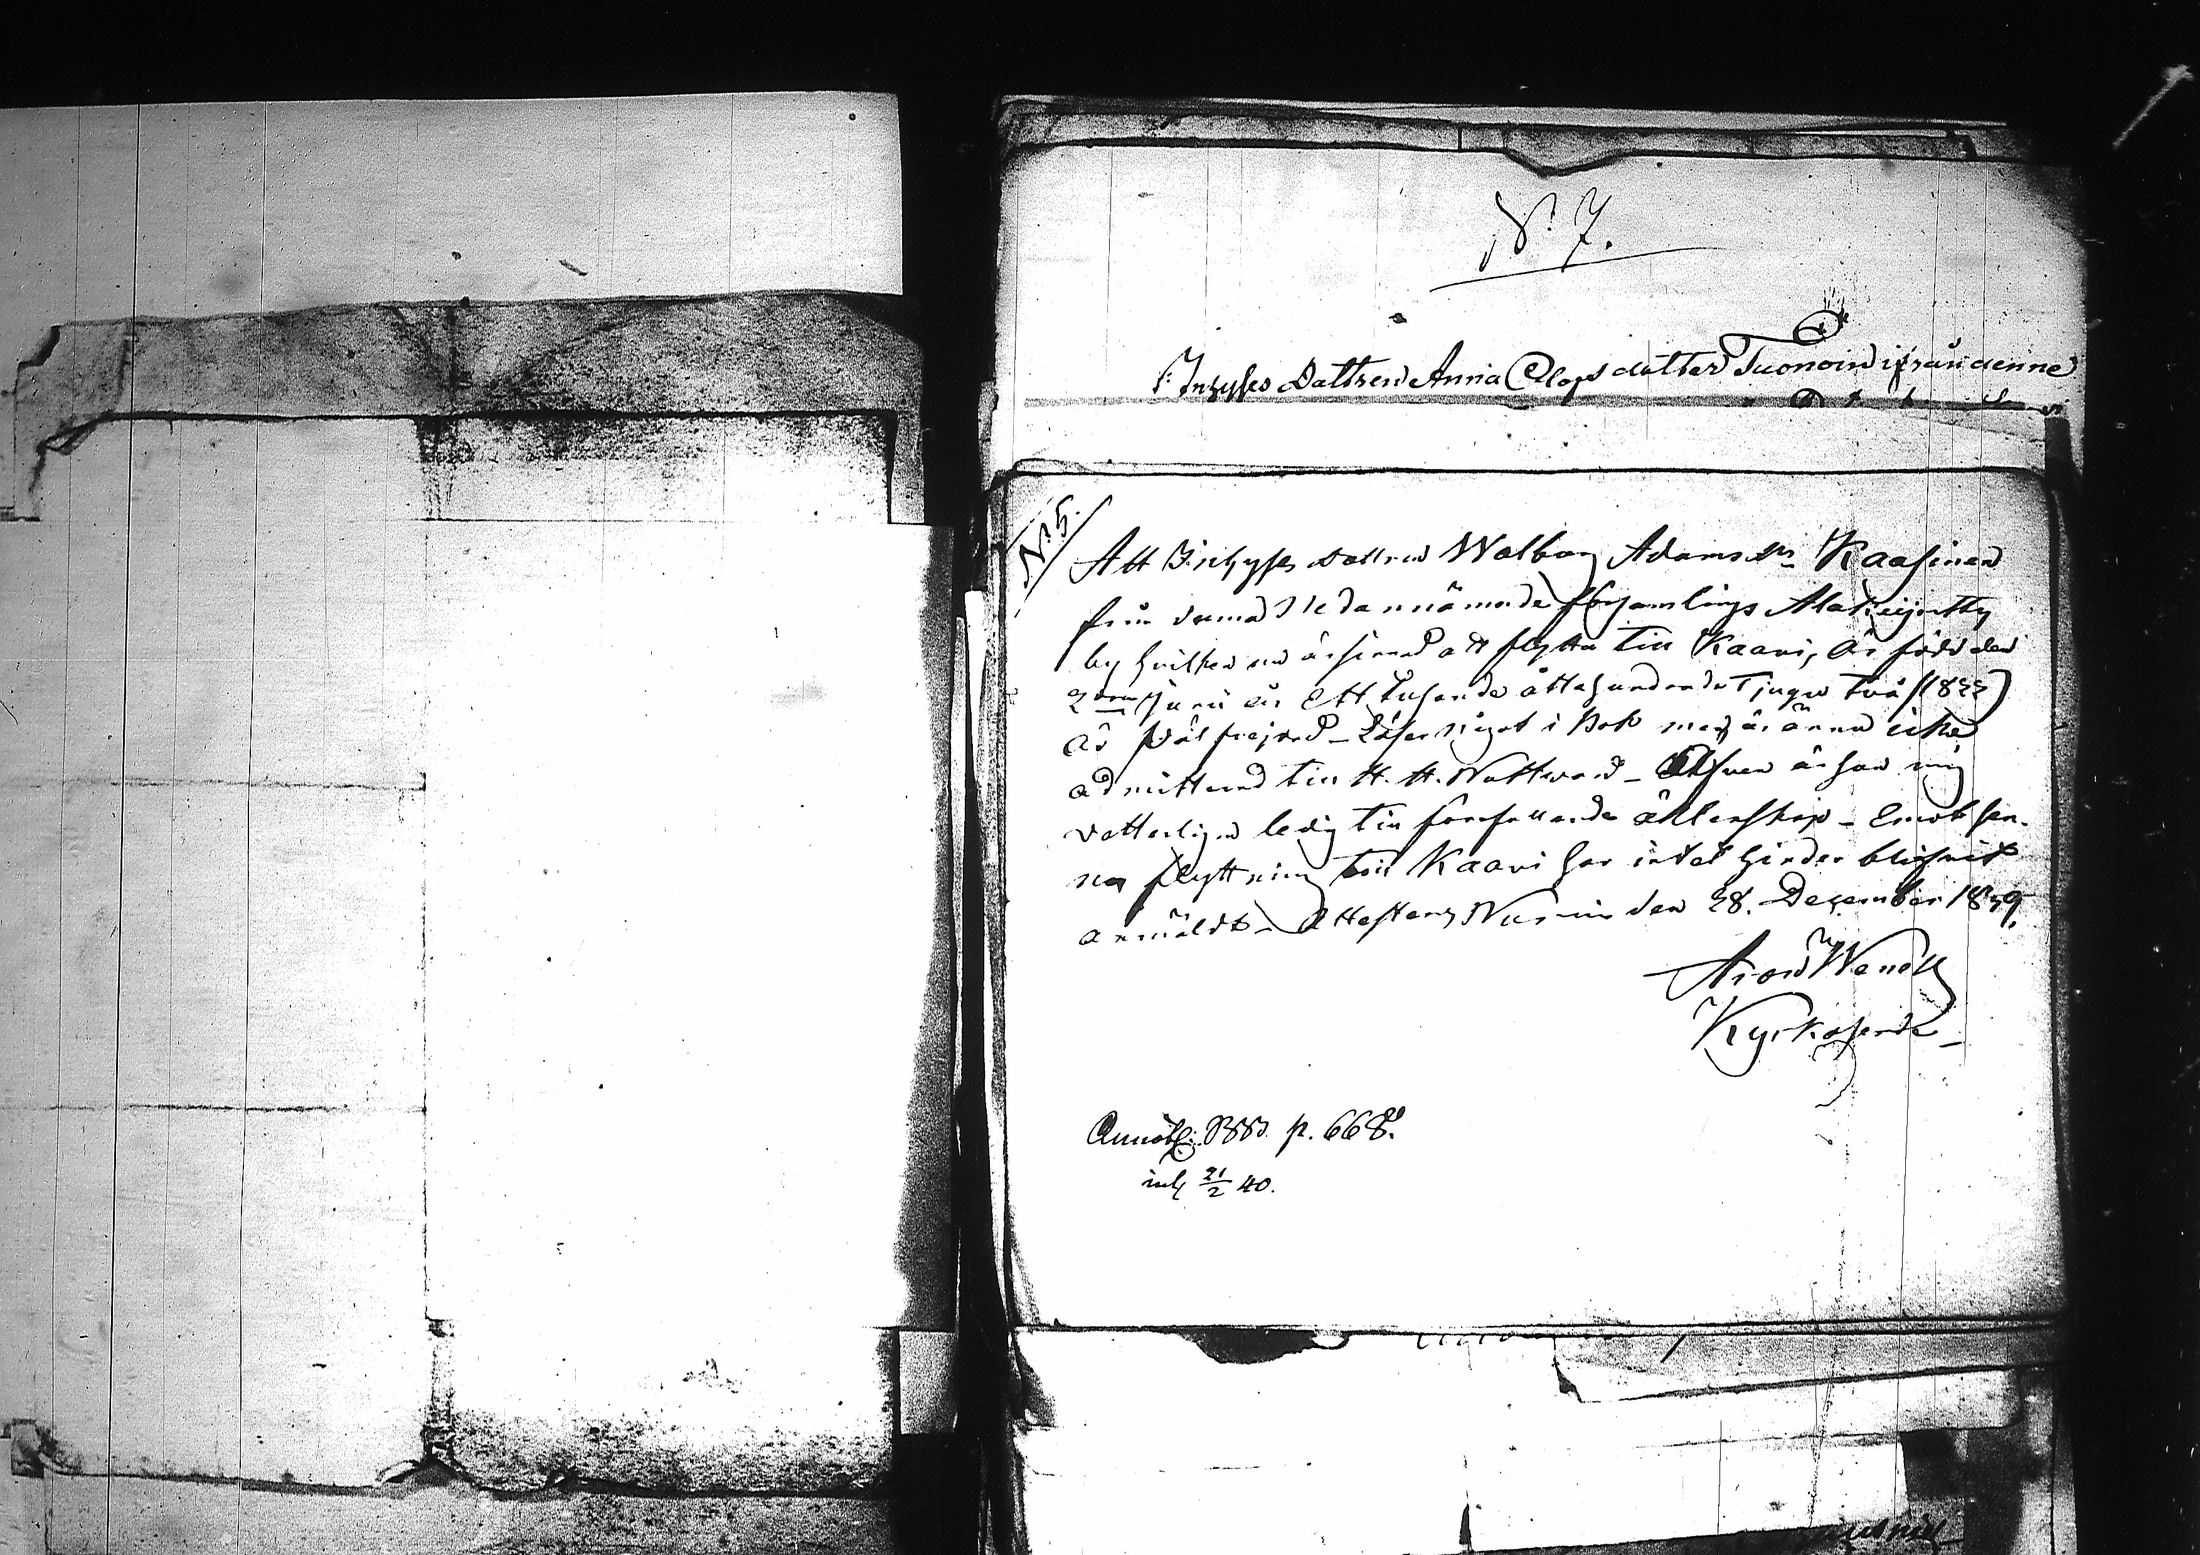 N:o 7.
Inhyses Dottren Anna Olofsdotter Tuonoin ifrån denne
N:o 5.
Att Inhyses dottren Walborg Adams dr Kaasinen
från denna Nedannämnde församlings Alakeyritty
by hvilken nu är sinnad att flytta till Kaavi, är född den
2 dra Juni år Ett tusende åttahundrade Tjugu två (1822)
är väl frejdad – Läser något i bok men är ännu icke
admitterad till H. H. Nattvard – Älfven är hon mig
vetterligen ledig till förefallande äktenskap – Emot hen-
nes flyttning till Kaavi har intet hinder blifvit
anmäldt – Attesterar Nurmis den 28. December 1839.
Aron Wenell
Kyrkoherde –
Annot: p. 668.
inl 21/2 40.